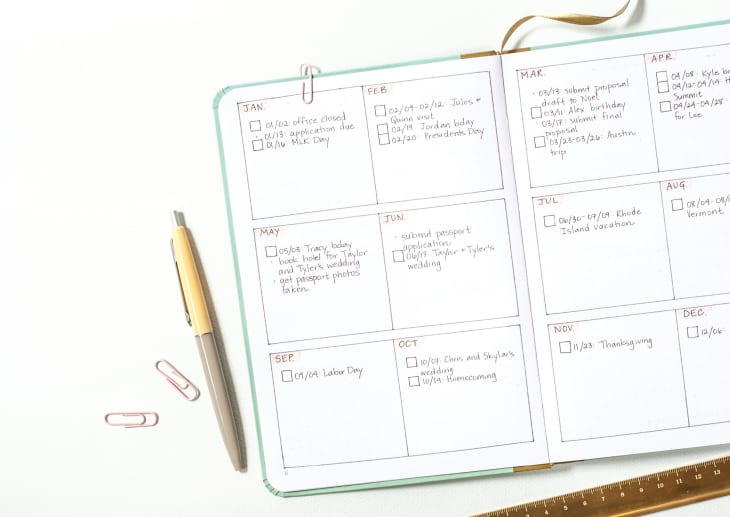 JAN.
01/02: office closed
· 01/13: application due
01/16: MLK Day
FEB.
02/09-02/12: Jules +
Quinn visit
02/19: Jordan bday
02/20: Presidents Day
MAR.
· 03/13: submit proposal
draft to Noel
03/11: Alex birthday
· 03/17: submit final
proposal
03/23-03/26: Austin
trip
APR.
04/08: Kyle
04/12-04/14:
Summit
04/24-04/28:
for Lee
MAY
05/03: Tracy bday
· book hotel for Taylor
and Tyler's wedding
· get passport photos
taken
JUN.
· submit passport
application
06/17: Taylor + Tyler's
wedding
JUL.
06/30-07/09: Rhode
Island vacation
AUG.
08/04-
Vermont
SEP.
09/04: Labor Day
OCT
10/07: Chris and Skylar's
wedding
10/14: Homecoming
NOV.
11/23: Thanksgiving
DEC.
12/06:
6 7 8 9 10 11 12 13